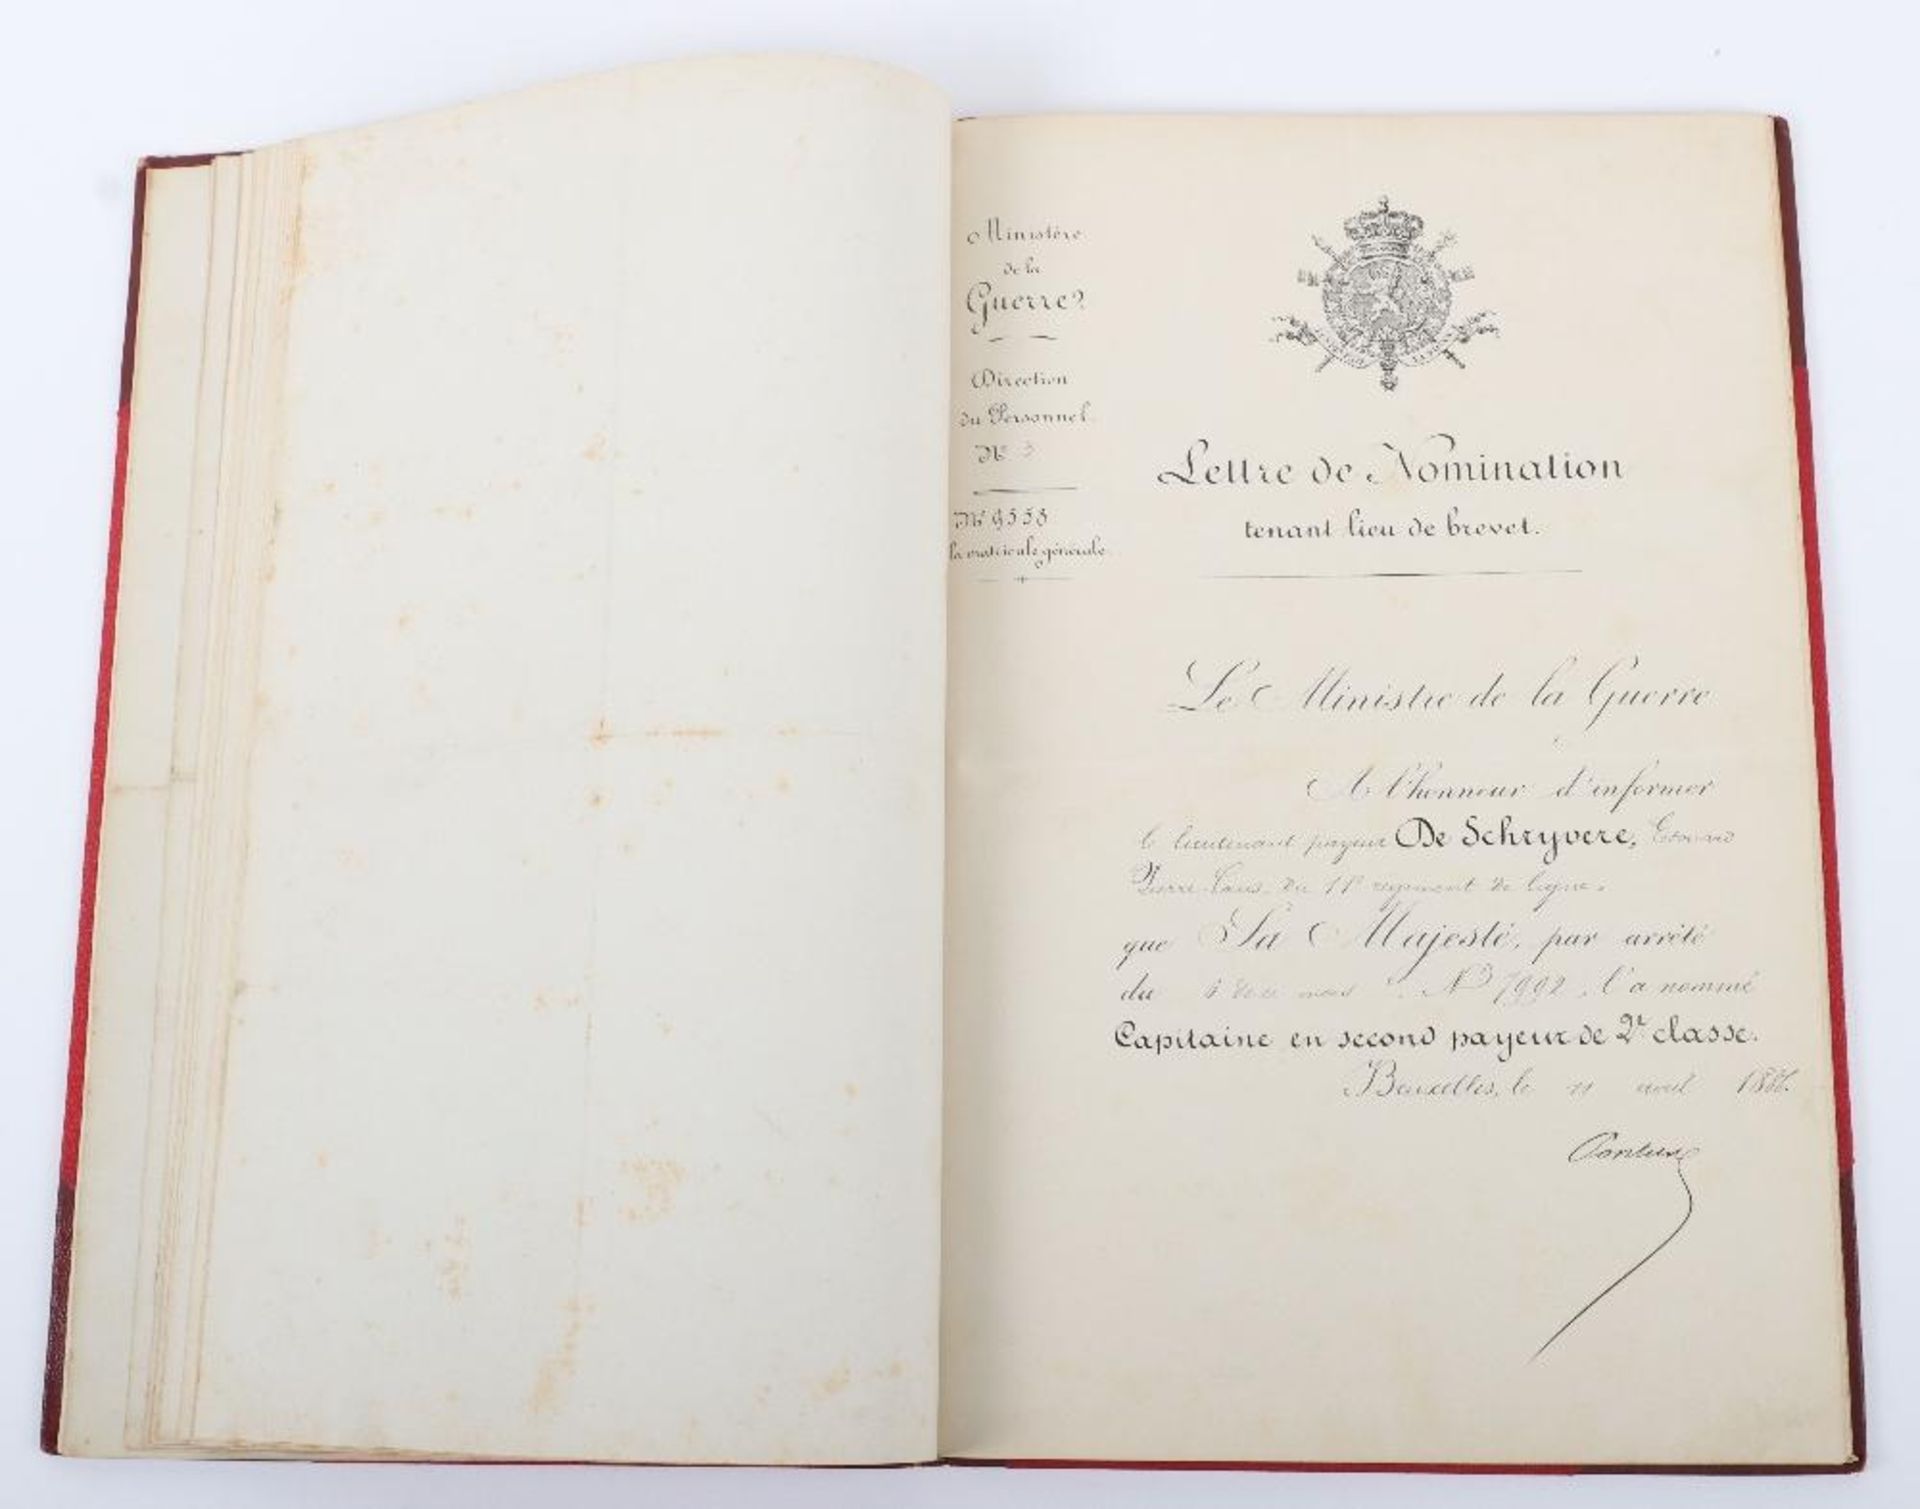 Ministère
de la
Guerre
Direction
du Personnel.
N° 3
N° 9558
la matricule générale
Lettre de Nomination
tenant lieu de brevet.
Le Ministre de la Guerre
A l'honneur d'informer
le lieutenant payeur De Schryvere, Edouard
Pierre Louis, du 11e régiment de ligne,
que Sa Majesté, par arrêté
du N° 7992, l'a nommé
Capitaine en second payeur de 2e classe.
Bruxelles, le 11 avril
Pontus